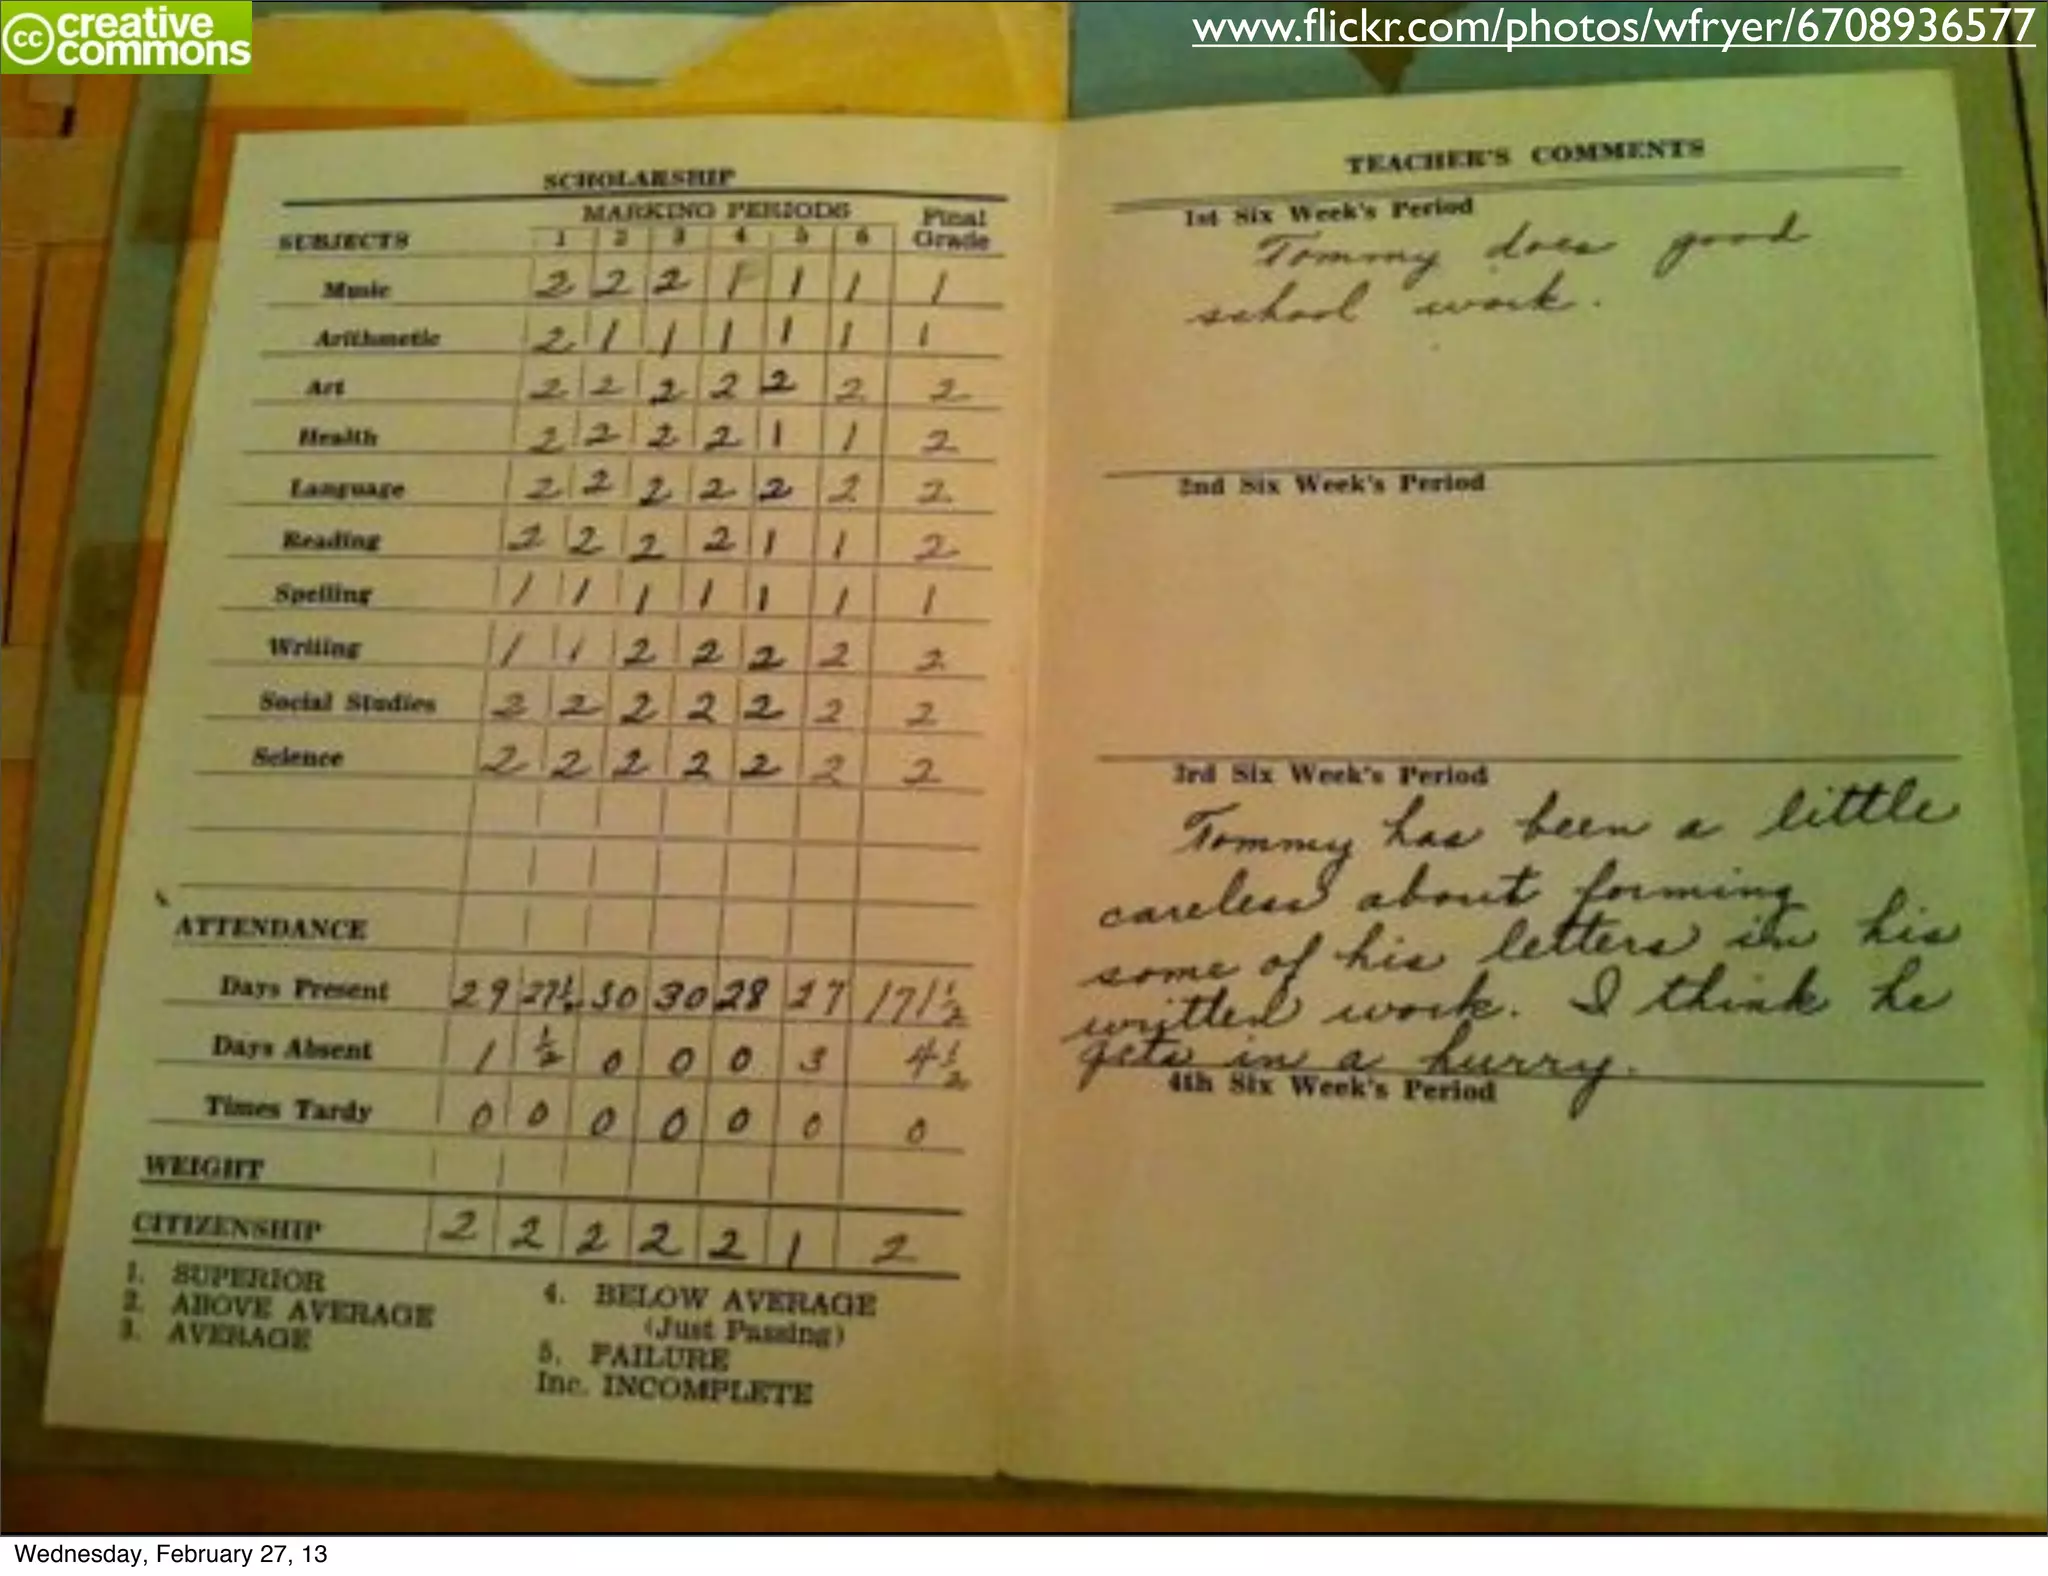 creative
commons
www.flickr.com/photos/wfryer/6708936577
SCHOLARSHIP
MARKING PERIODS
SUBJECTS 1 2 3 4 5 6 Final Grade
Music 2 2 2 1 1 1 1
Arithmetic 2 1 1 1 1 1 1
Art 2 2 2 2 2 2 2
Health 2 2 2 2 1 1 2
Language 2 2 2 2 2 2 2
Reading 2 2 2 2 1 1 2
Spelling 1 1 1 1 1 1 1
Writing 1 1 2 2 2 2 2
Social Studies 2 2 2 2 2 2 2
Science 2 2 2 2 2 2 2
ATTENDANCE
Days Present 29 27½ 30 30 28 27 171½
Days Absent 1 ½ 0 0 0 3 4½
Times Tardy 0 0 0 0 0 0 0
WEIGHT
CITIZENSHIP 2 2 2 2 2 1 2
1. SUPERIOR
2. ABOVE AVERAGE
3. AVERAGE
4. BELOW AVERAGE
(Just Passing)
5. FAILURE
Inc. INCOMPLETE
TEACHER'S COMMENTS
1st Six Week's Period
Tommy does good
school work.
2nd Six Week's Period
3rd Six Week's Period
Tommy has been a little
careless about forming
some of his letters in his
written work. I think he
gets in a hurry.
4th Six Week's Period
Wednesday, February 27, 13